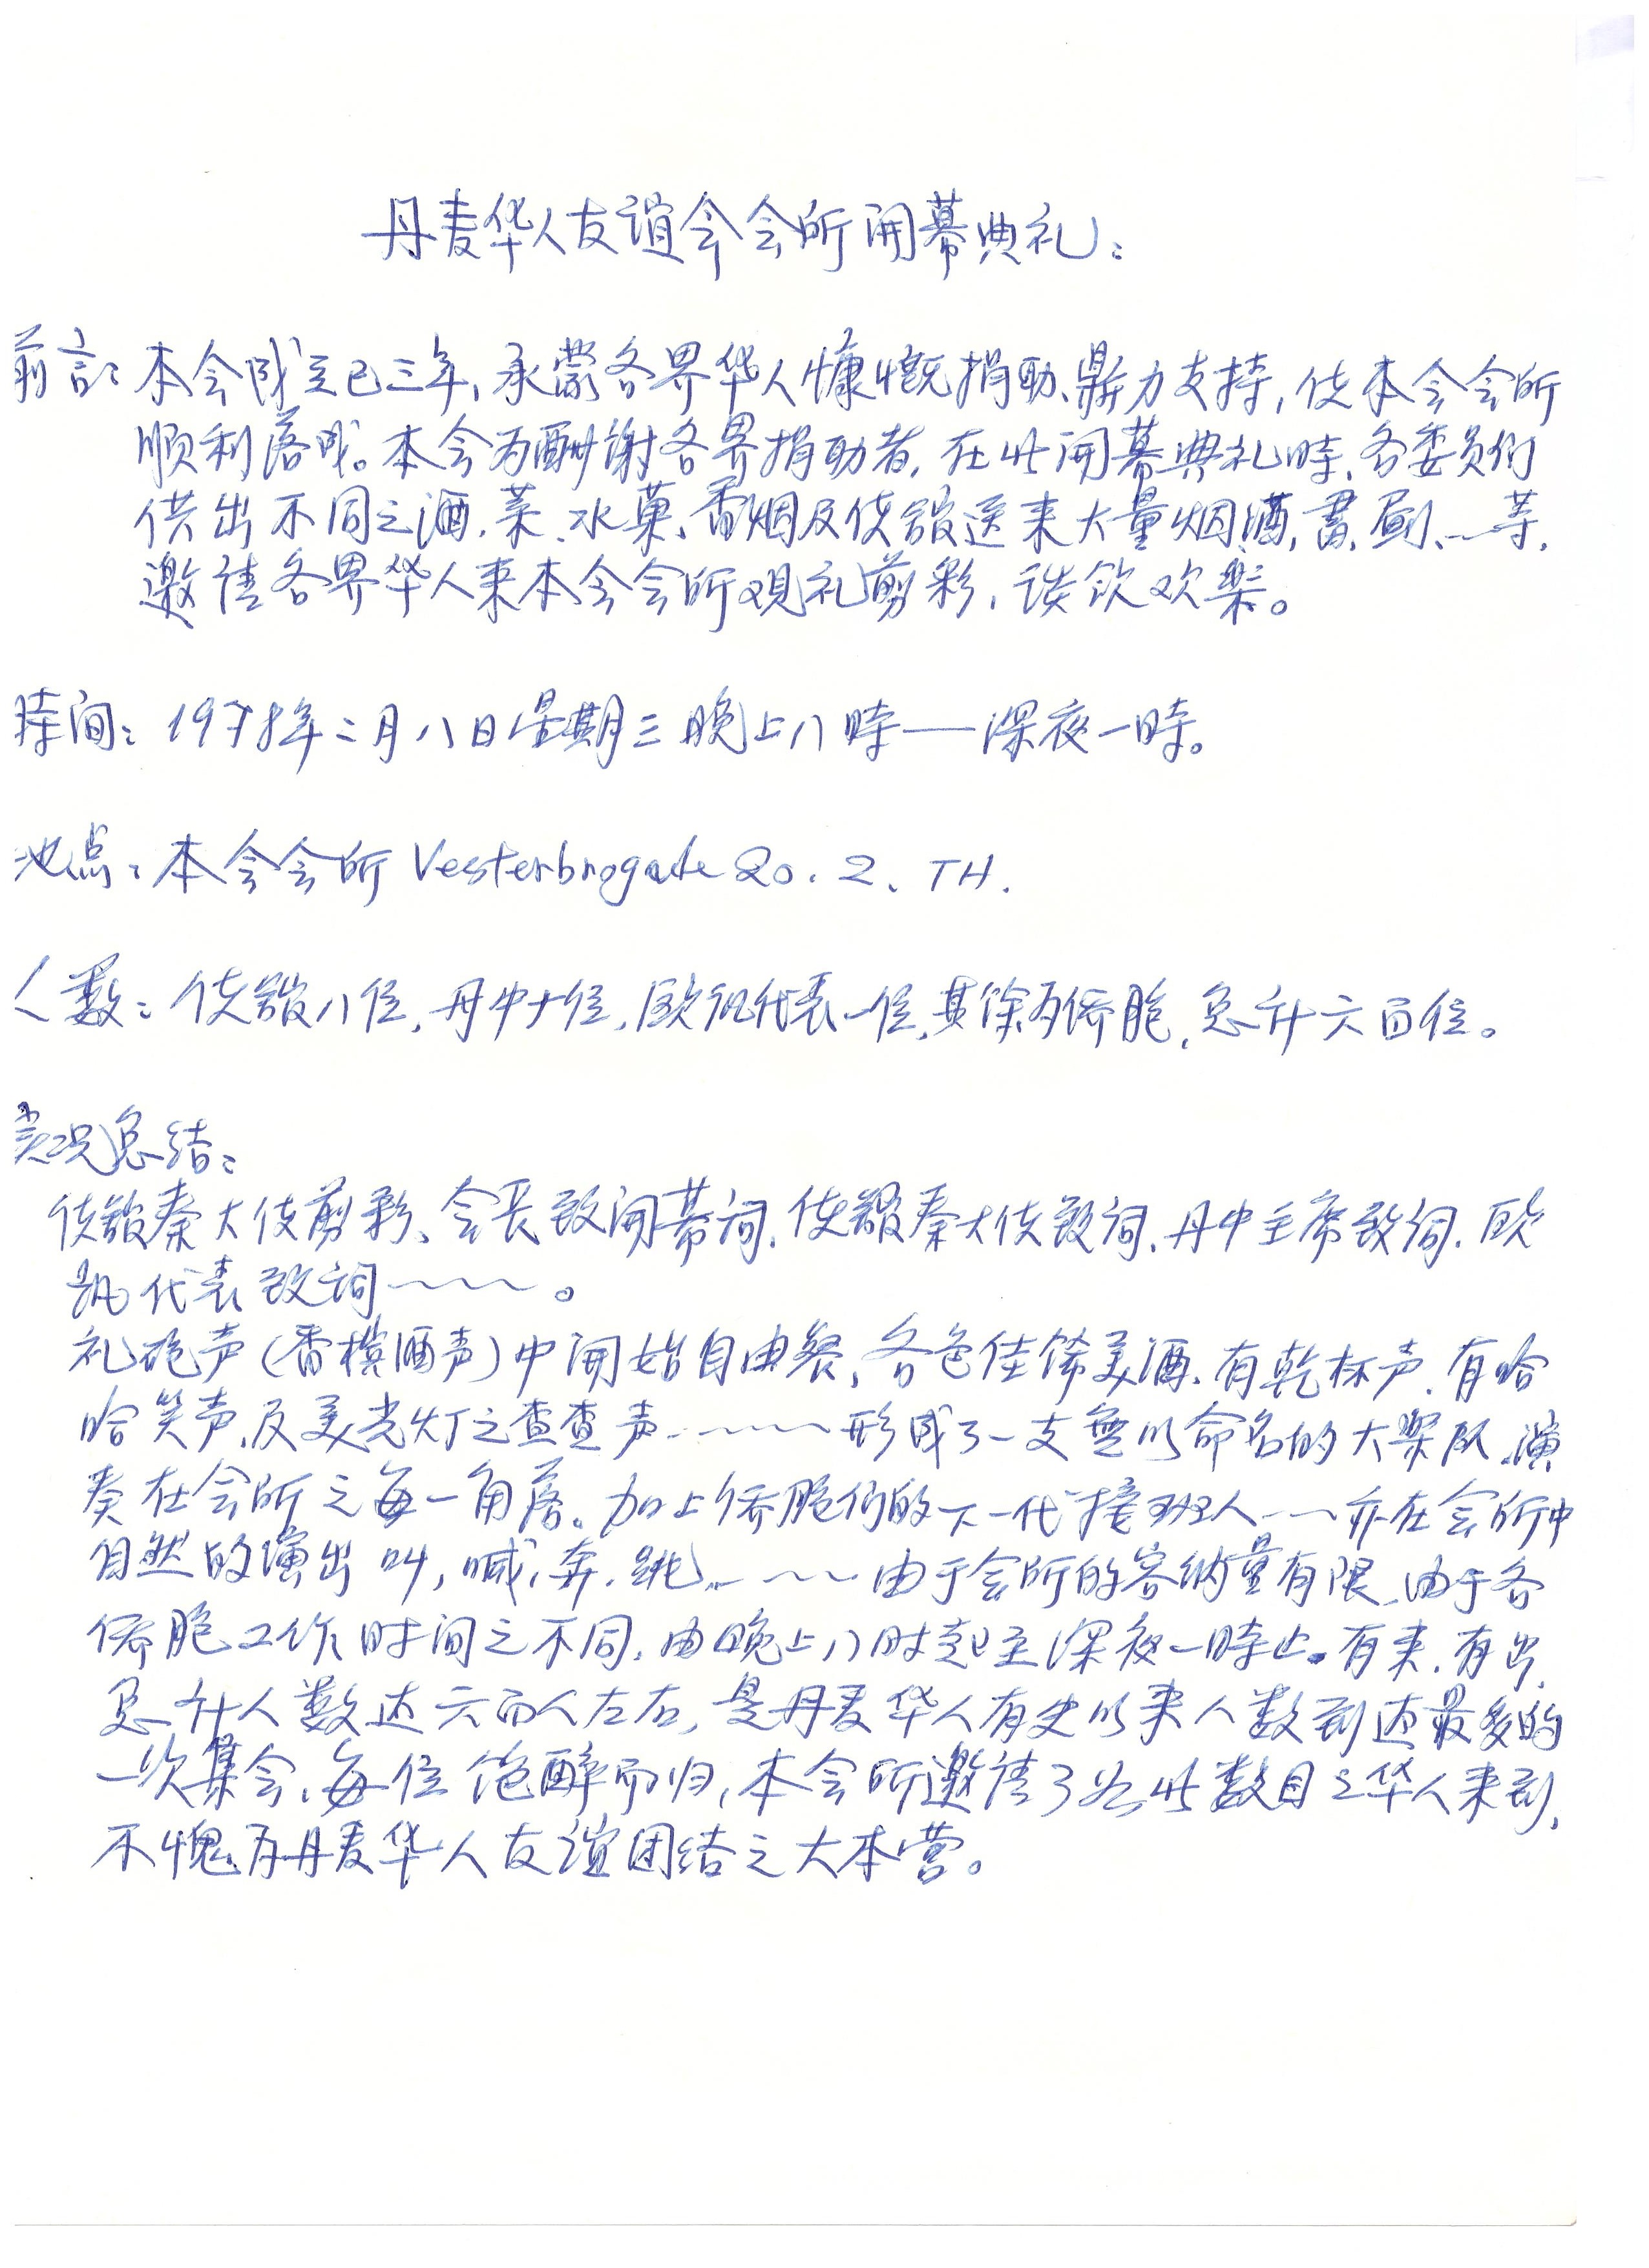 丹麦华人友谊会会所開幕典礼:
前言: 本会成立已三年,承蒙各界华人慷慨捐助、鼎力支持,使本会会所
顺利落成。本会为酬谢各界捐助者,在此開幕典礼時、各委员们
供出不同之酒、菜、水菓、香烟及使舘送来大量烟酒,書、刷、……等,
邀请各界华人来本会会所观礼剪彩,谈饮欢樂。
時间: 1978年二月八日星期三晚上八時——深夜一時。
地点: 本会会所 Vesterbrogade 20. 2. TH.
人数: 使舘八位,丹中十位,欧航代表一位,其馀为侨胞,总计六百位。
实况总结:
使舘秦大使剪彩、会长致開幕词、使舘秦大使致词、丹中主席致词、欧
航代表致词……。
礼砲声(香槟酒声)中開始自由餐,各色佳馐美酒、有乾杯声、有哈
哈笑声、及美光灯之查查声………形成了一支無以命名的大樂队、演
奏在会所之每一角落。加上侨胞们的下一代"接班人……亦在会所中
自然的演出 叫,喊,奔,跳………由于会所的容纳量有限、由于各
侨胞工作时间之不同,由晚上八时起至深夜一時止。有来,有出,
总计人数达六百人左右,是丹麦华人有史以来人数到达最多的
一次集会、每位饱醉而归,本会所邀请了如此数目之华人来到,
不愧为丹麦华人友谊团结之大本营。